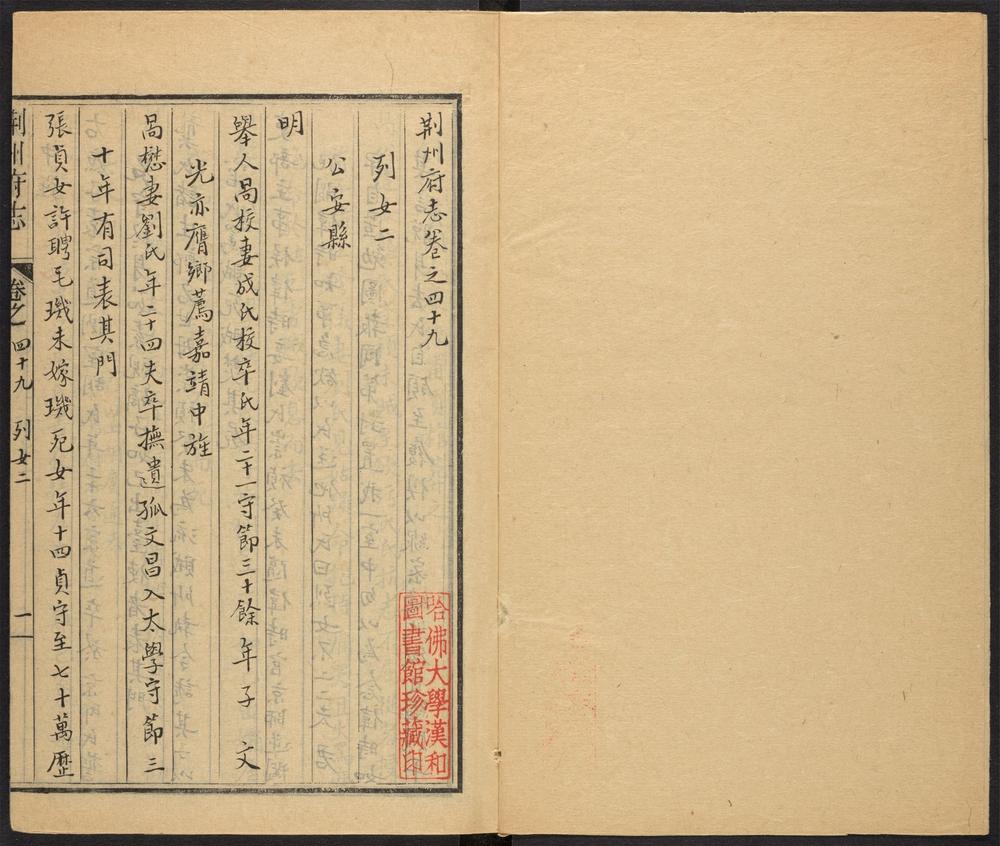 荆州府志卷之四十九
列女二
公安縣
明
舉人咼校妻成氏校卒氏年二十一守節三十餘年子文
光亦膺鄉薦嘉靖中旌
咼懋妻劉氏年二十四夫卒撫遺孤文昌入太學守節三
十年有司表其門
張貞女許聘毛璣未嫁璣死女年十四貞守至七十萬歷
荆州府志 卷之四十九 列女二 一
哈佛大學漢和
圖書館珍藏印